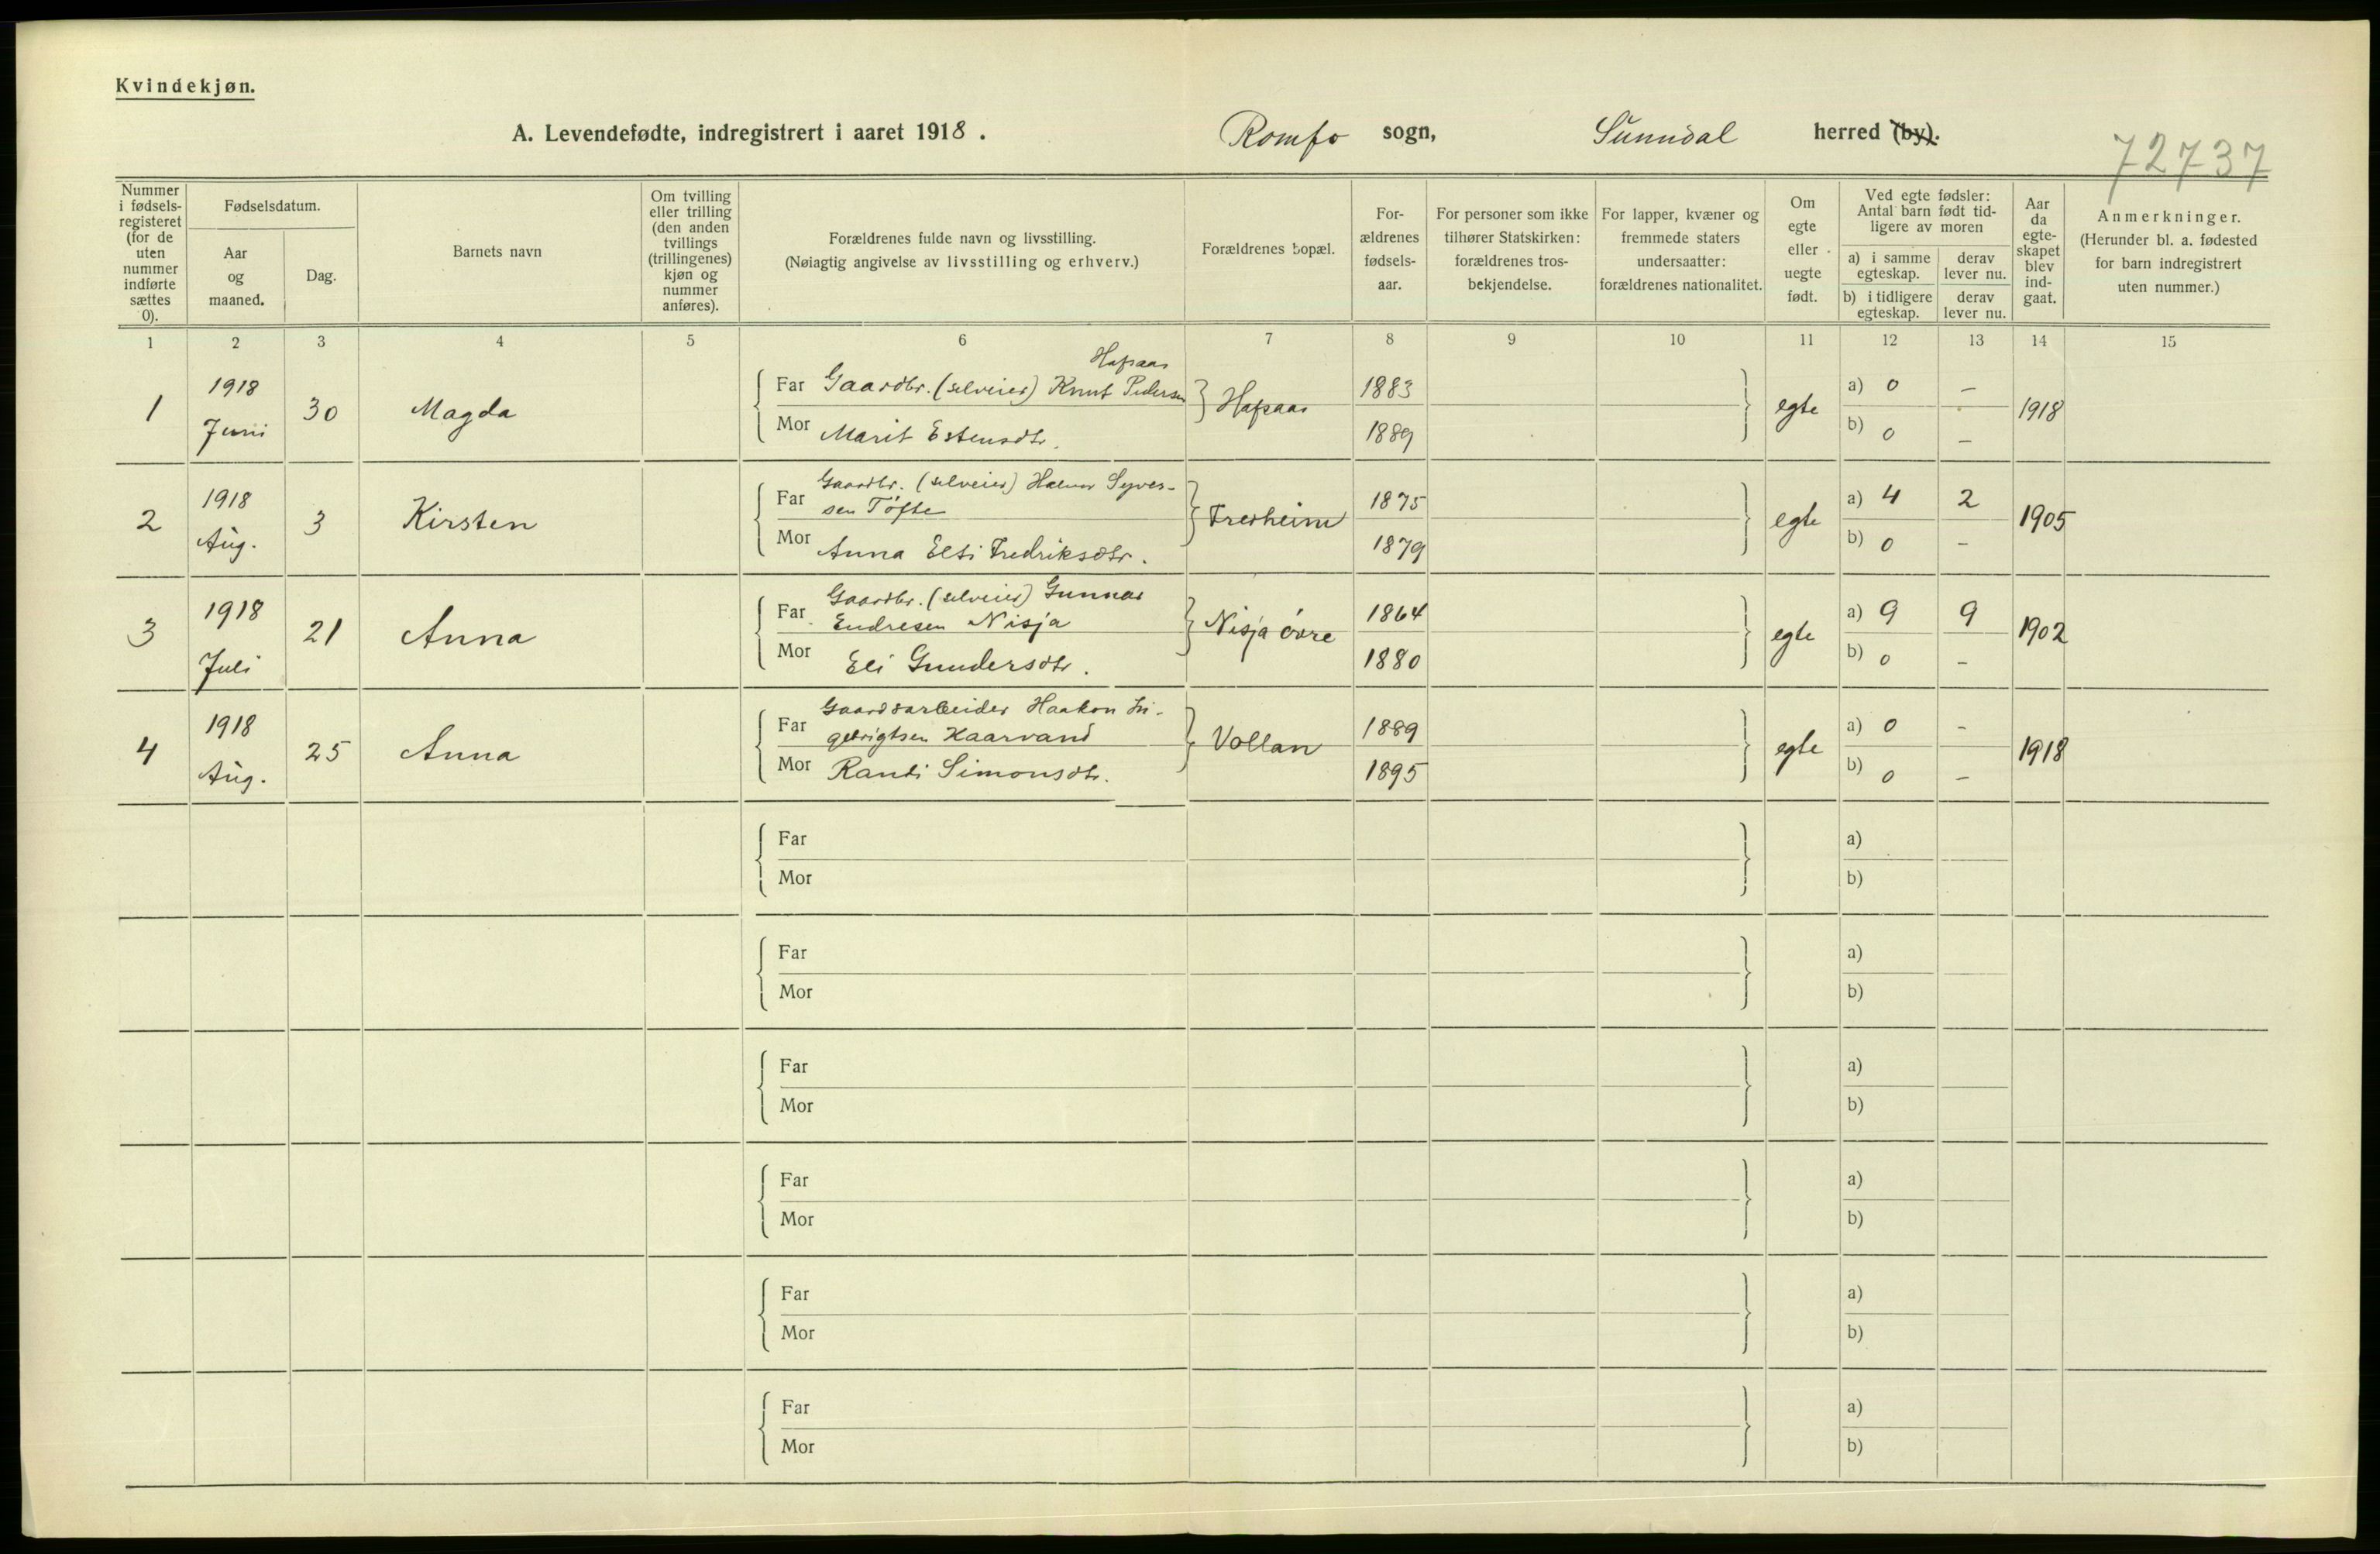 Kvindekjøn.
A. Levendefødte, indregistrert i aaret 1918. Romfo sogn, Sunndal herred (by).
72737
Nummer i fødsels-registeret (for de uten nummer indførte sættes 0).
Fødselsdatum.
Aar og maaned.
Dag.
Barnets navn
Om tvilling eller trilling (den anden tvillings (trillingenes) kjøn og nummer anføres).
Forældrenes fulde navn og livsstilling.
(Nøiagtig angivelse av livsstilling og erhverv.)
Forældrenes bopæl.
For-ældrenes fødsels-aar.
For personer som ikke tilhører Statskirken: forældrenes tros-bekjendelse.
For lapper, kvæner og fremmede staters undersaatter: forældrenes nationalitet.
Om egte eller uegte født.
Ved egte fødsler: Antal barn født tid-ligere av moren
a) i samme egteskap.
derav lever nu.
b) i tidligere egteskap.
derav lever nu.
Aar da egte-skapet blev ind-gaat.
Anmerkninger.
(Herunder bl. a. fødested for barn indregistrert uten nummer.)
1 2 3 4 5 6 7 8 9 10 11 12 13 14 15
1 1918 Juni 30 Magda
Hafsaas
Far Gaardbr. (selveier) Knut Pedersen
Mor Marit Estensdtr.
Hafsaas 1883 1889 egte a) 0 – b) 0 – 1918
2 1918 Aug. 3 Kirsten
Gaardbr. (selveier) Halvor Syver-
Far sen Tøfte
Mor Anna Elti Fredriksdtr.
Fredheim 1875 1879 egte a) 4 2 b) 0 – 1905
3 1918 Juli 21 Anna
Gaardbr. (selveier) Gunnar
Far Endresen Nisja
Mor Eli Gundersdtr.
Nisja øvre 1864 1880 egte a) 9 9 b) 0 – 1902
4 1918 Aug. 25 Anna
Gaardsarbeider Haakon In-
Far gebrigtsen Kaarvand
Mor Randi Simonsdtr.
Vollan 1889 1895 egte a) 0 – b) 0 – 1918
Far a)
Mor b)
Far a)
Mor b)
Far a)
Mor b)
Far a)
Mor b)
Far a)
Mor b)
Far a)
Mor b)